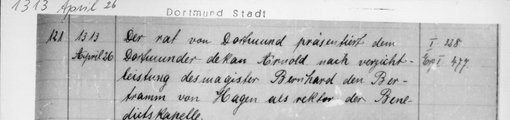 1313 April 26
Dortmund Stadt
121 1313 Der rat von Dortmund präsentiert dem I 328
April 26 Dortmunder dekan Arnold nach verzicht- Erg I 477.
leistung des magister Bernhard den Ber-
tramm von Hagen als rektor der Bene-
dictskapelle.